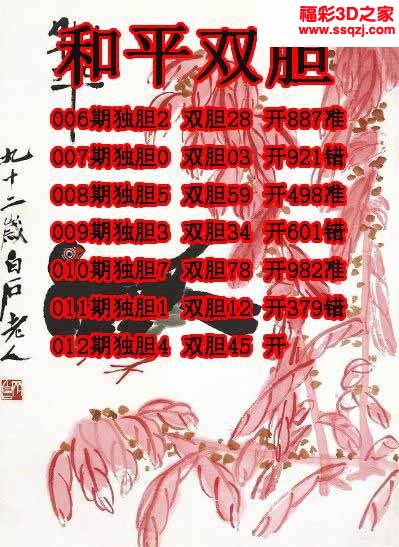 福彩3D之家
www.ssqzj.com
和平双胆
006期独胆2 双胆28 开887准
007期独胆0 双胆03 开921错
008期独胆5 双胆59 开498准
009期独胆3 双胆34 开601错
010期独胆7 双胆78 开982准
011期独胆1 双胆12 开379错
012期独胆4 双胆45 开
九十二歲白石老人